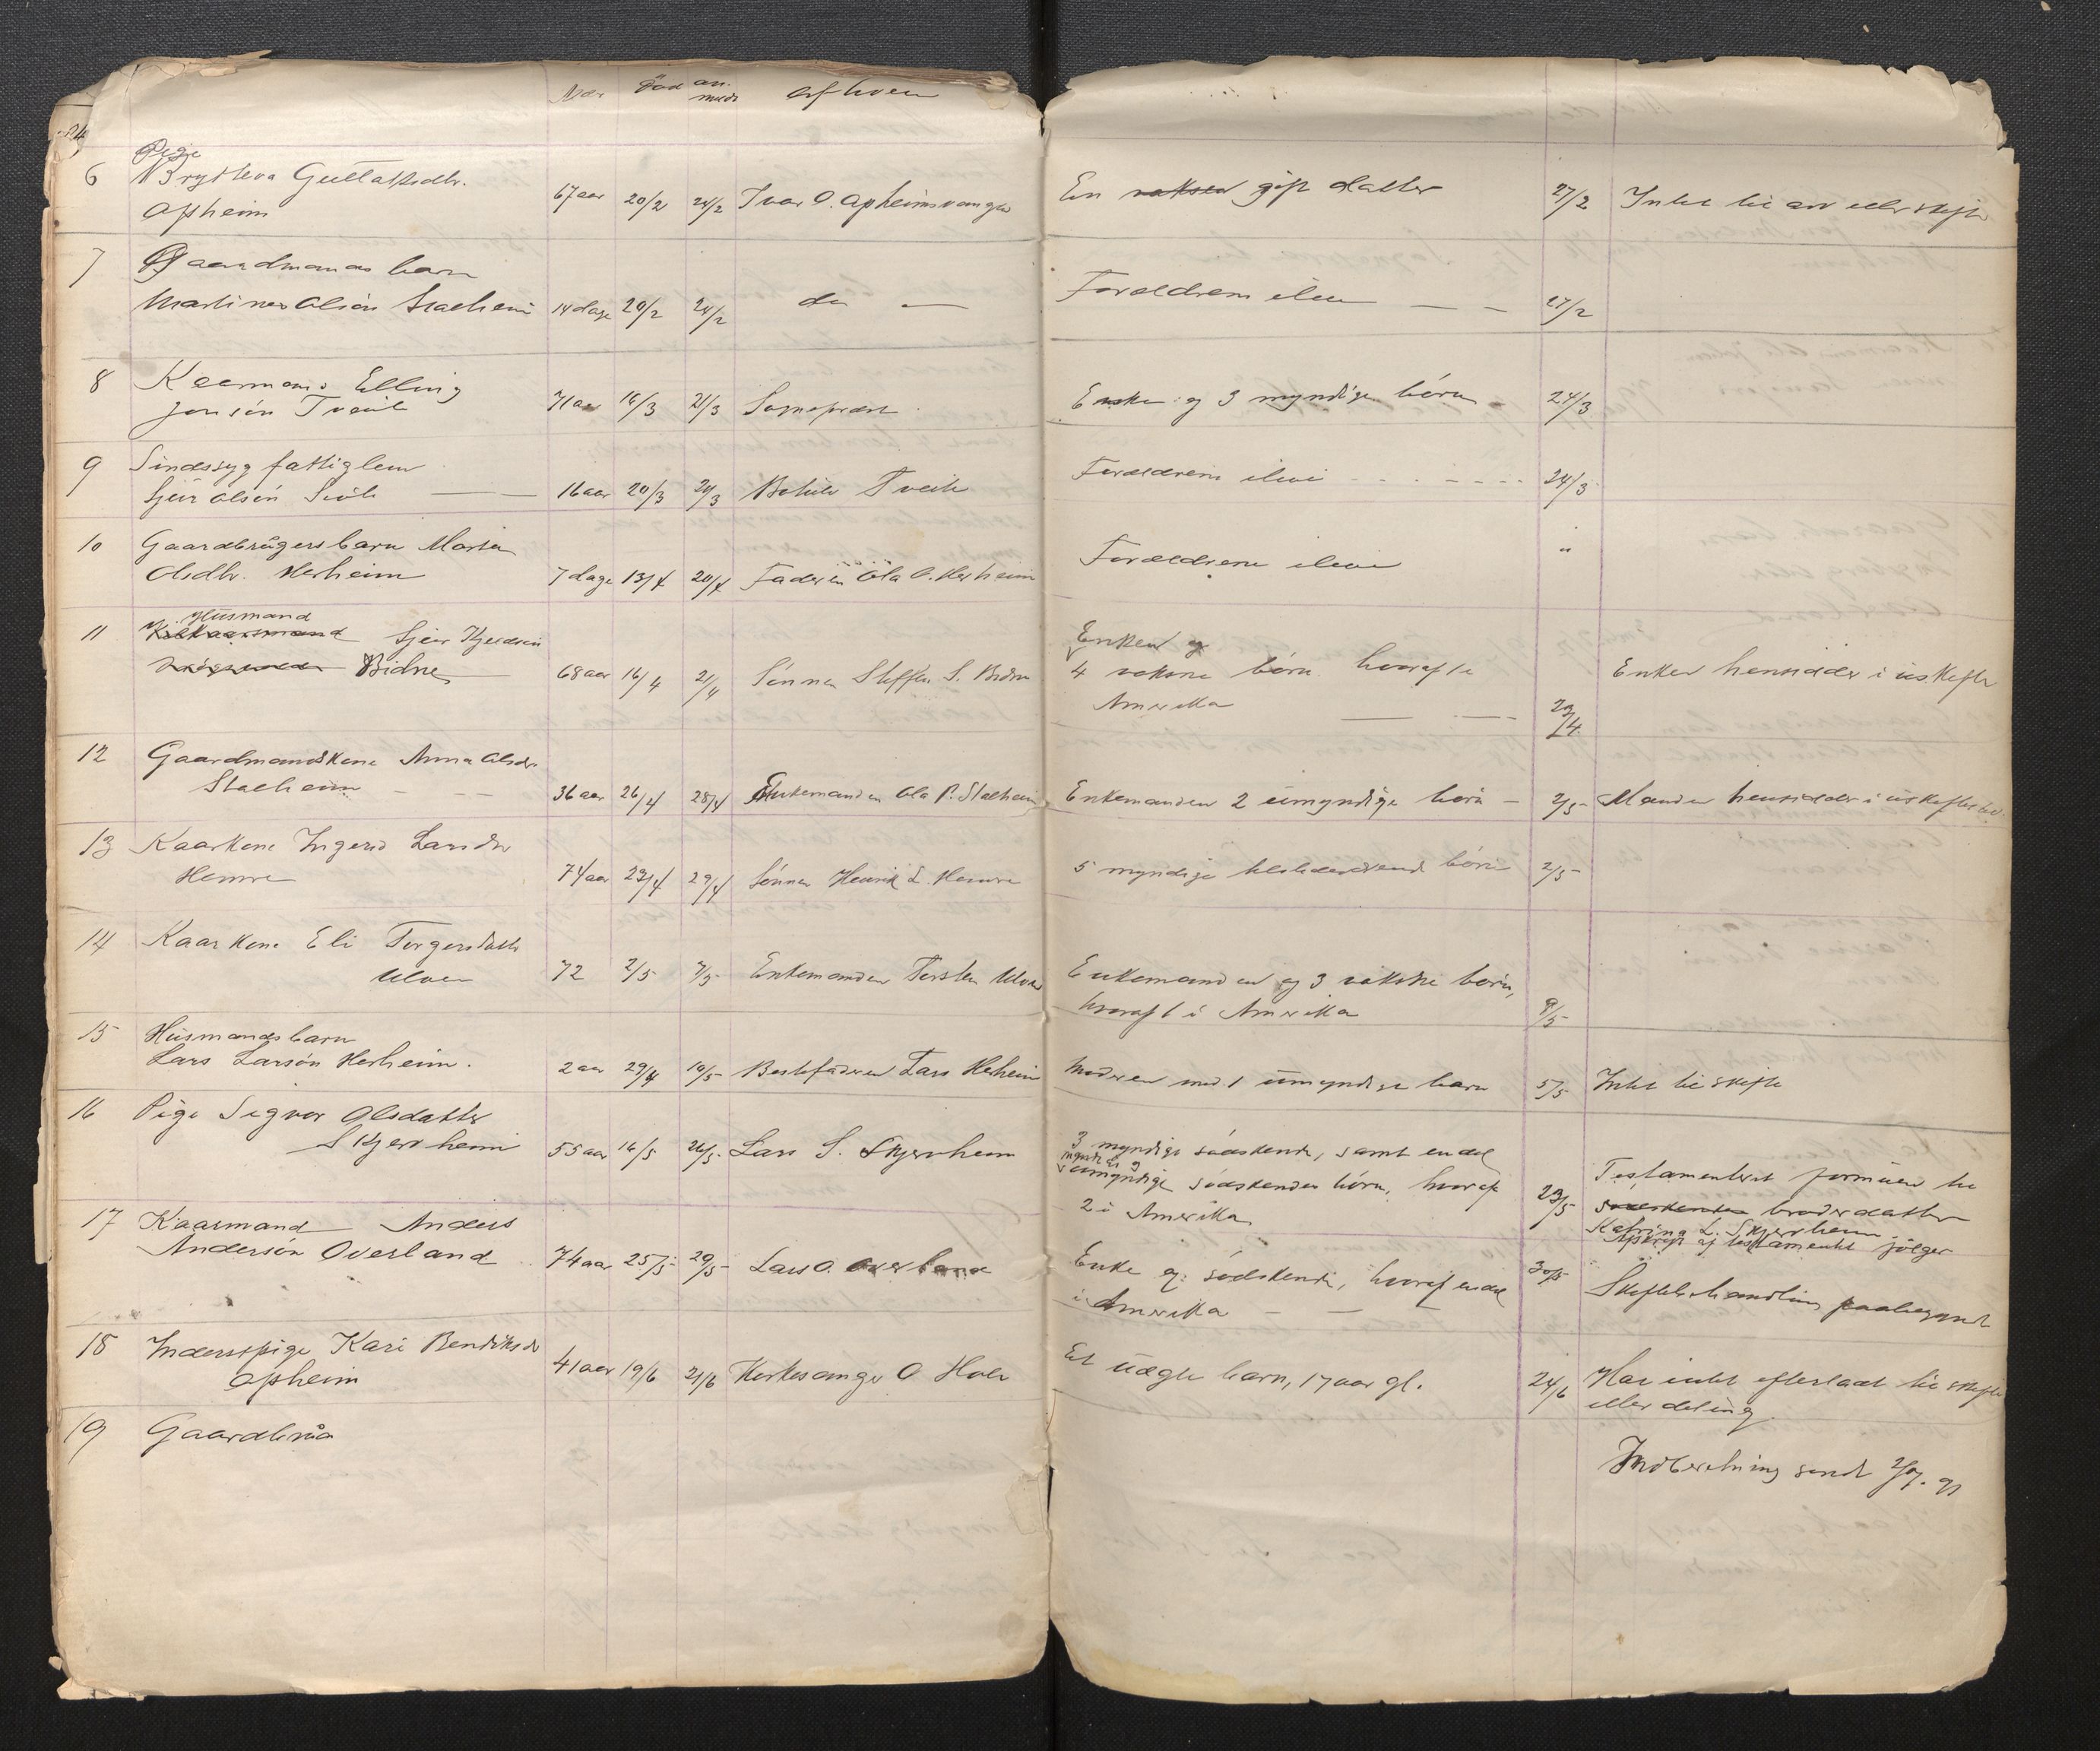 Alder død an- af hvem
meldt
Pige
6 Brytteva Guttalksdtr.
Opheim 67 aar 20/2 24/2 Ivar O. Opheimsvangen En vaksen gift datter 27/2 Intet til arv eller skifte
7 Gaardmands barn
Martines Olsön Stalheim 14 dage 20/2 24/2 do — Foreldrene ilive — — 27/2
8 Kaarmand Elling
Jonsön Tveite 71 aar 16/3 21/3 Sognepræst Enke og 3 myndige börn 24/3
9 Sindssyg fattiglem
Sjur Olsön 16 aar 20/3 24/3 Botilv Tveite Foreldrene ilive 24/3
10 Gaardbrügers barn Marta
Olsdtr. Herheim 7 dage 13/4 20/4 Faderen Ola O. Herheim Foreldrene ilive "
Husmand
11 Kaarmand Sjur Kjeldsön
Bidne 68 aar 16/4 21/4 Sönnen Steffen S. Bidne
Enken og
4 voksne börn hvoraf 1 i
Amerika — — 23/4 Enken hensidder i üskifte
12 Gaardmandskone Anna Olsdr
Stalheim — — 36 aar 26/4 28/4 Enkemanden Ola P. Stalheim Enkemanden 2 ümyndige börn — 2/5 Manden hensidder i üskiftet bo
13 Kaarkone Ingerid Larsdr
Hemre 74 aar 23/4 29/4 Sönnen Henrik L. Hemre 5 myndige börn 2/5
14 Kaarkone Eli Torgersdatter
Ulven 72 2/5 7/5 Enkemanden Torsten Ulven Enkemanden og 3 voksne börn,
hvoraf 1 i Amerika 9/5
15 Hüsmandsbarn
Lars Larsön Herheim. 2 aar 29/4 10/5 Bestefaderen Lars Herheim Moderen med 1 ümyndige barn 5/5 Intet til skifte
16 Pige Sigvor Olsdatter
Skjerheim 55 aar 16/5 26/5 Lars S. Skjerheim
3 myndige södskende, samt endel
myndige og
ümyndige södskendes börn, hvoraf
2 i Amerika 23/5
Testamenteret formüen til
södskendes broderdatter
Katrina L. Skjerheim
Afskrift af testamentet fölger
17 Kaarmand Anders
Andersön Overland 74 aar 25/5 29/5 Lars O. Overland
Enke og södskende, hvoraf endel
i Amerika — — — 30/5 Skiftebehandling paabegyndt
18 Inderstpige Kari Bendiksdr
Opheim 41 aar 19/6 21/6 Kirkesanger O Hole Et üægte barn, 17 aar gl. 24/6 Har intet efterladt til skifte
eller deling
19 Gaardbrü
Indberetning sendt 2/7. 91